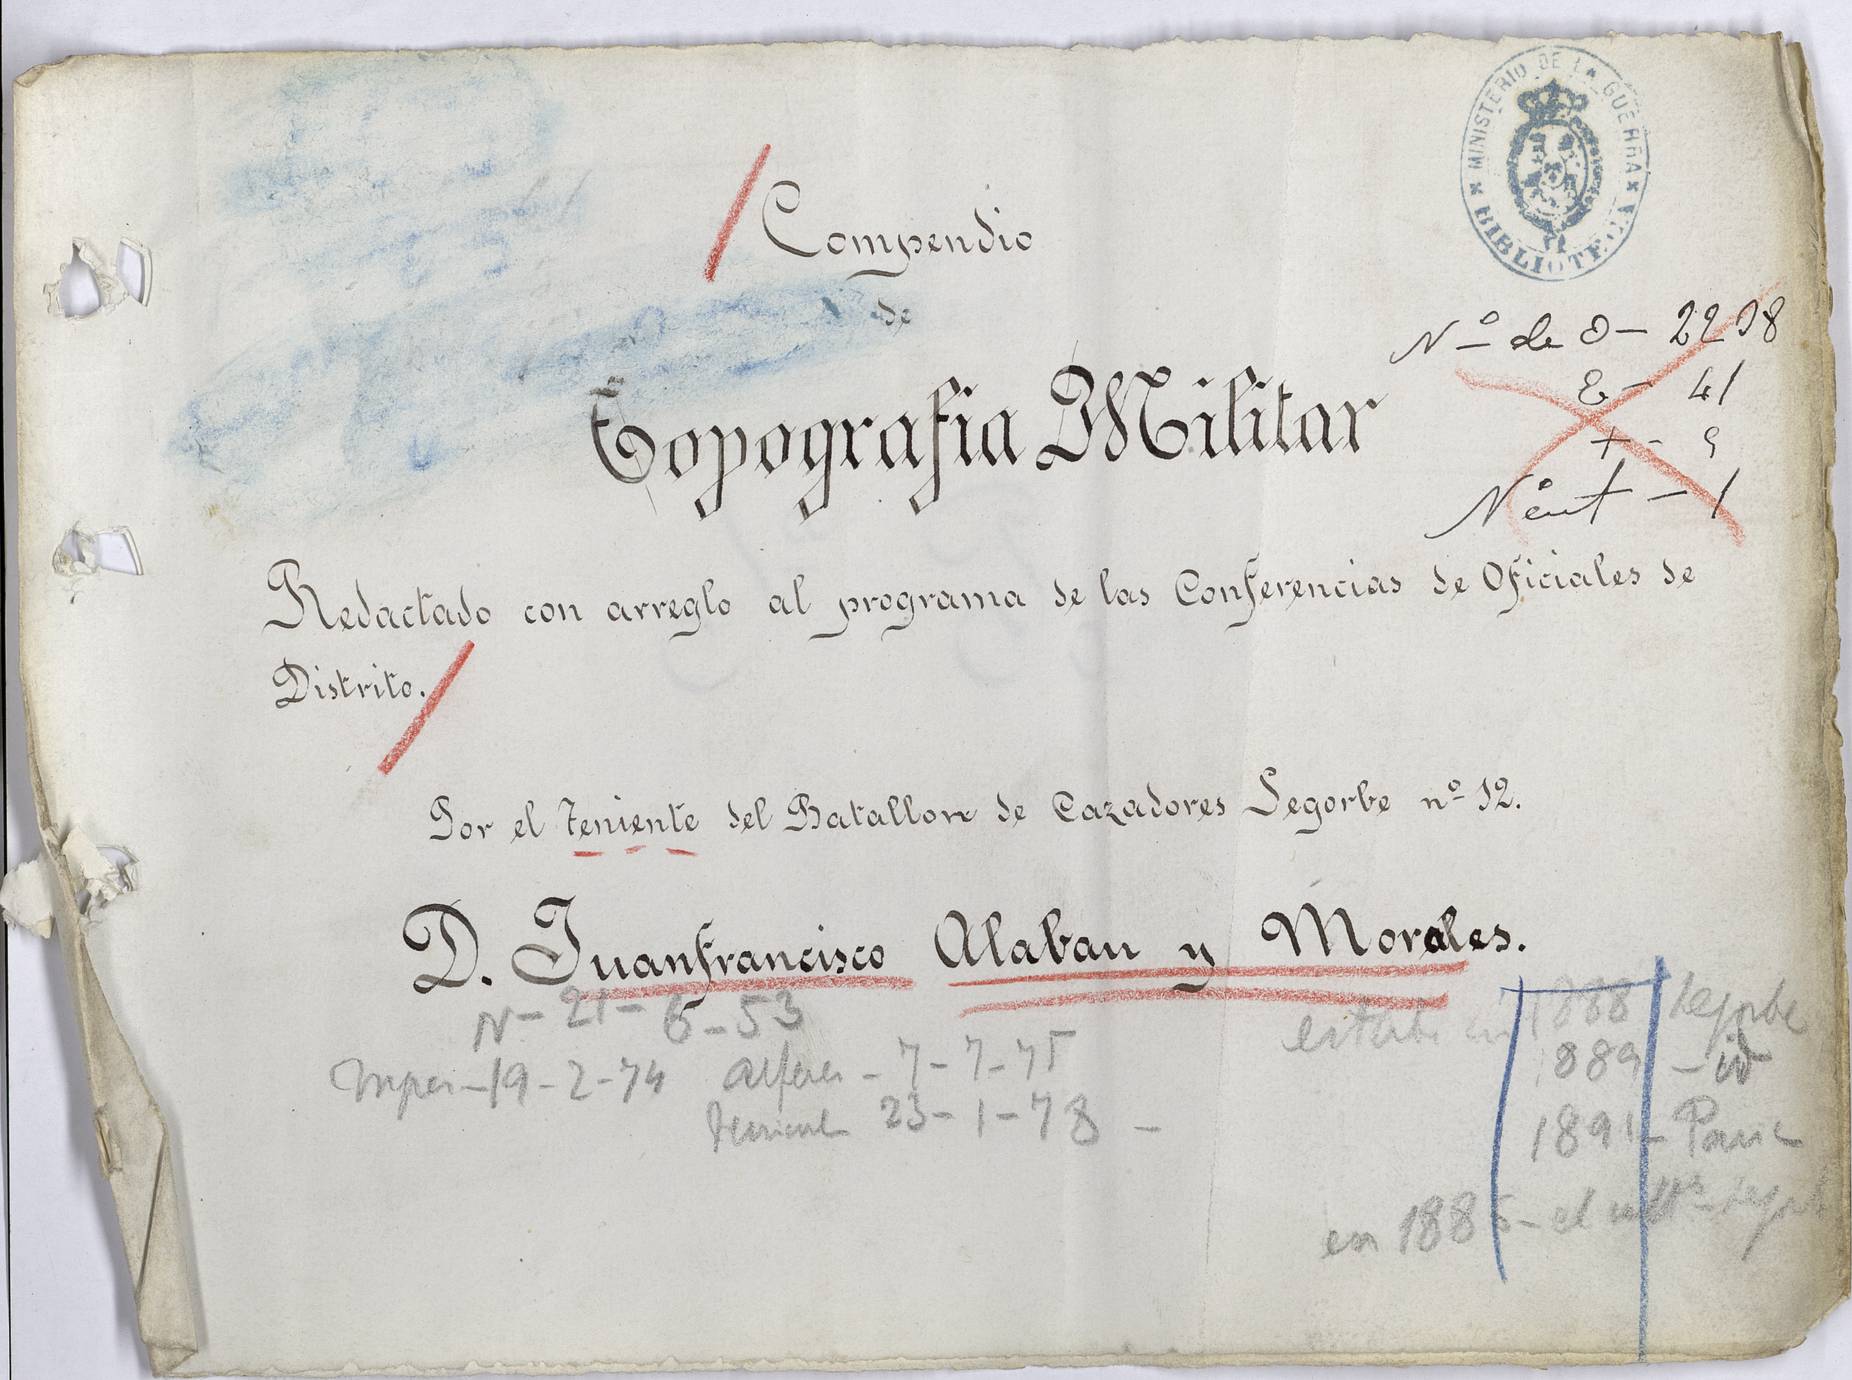 MINISTERIO DE LA GUERRA
BIBLIOTECA
Compendio
de
Topografia Militar
Nº de O - 2298
E - 41
t - 9
Nº ent - 1
Redactado con arreglo al programa de las Conferencias de Oficiales de
Distrito.
Por el Teniente del Batallon de Cazadores Segorbe nº 12.
D. Juanfrancisco Alaban y Morales.
N - 21 - 6 - 53
19 - 2 - 74 Alferez - 7 - 7 - 75
Teniente 23 - 1 - 78 -
en 1888 Segorbe
1889 - id
1891 -
en 1885 - el